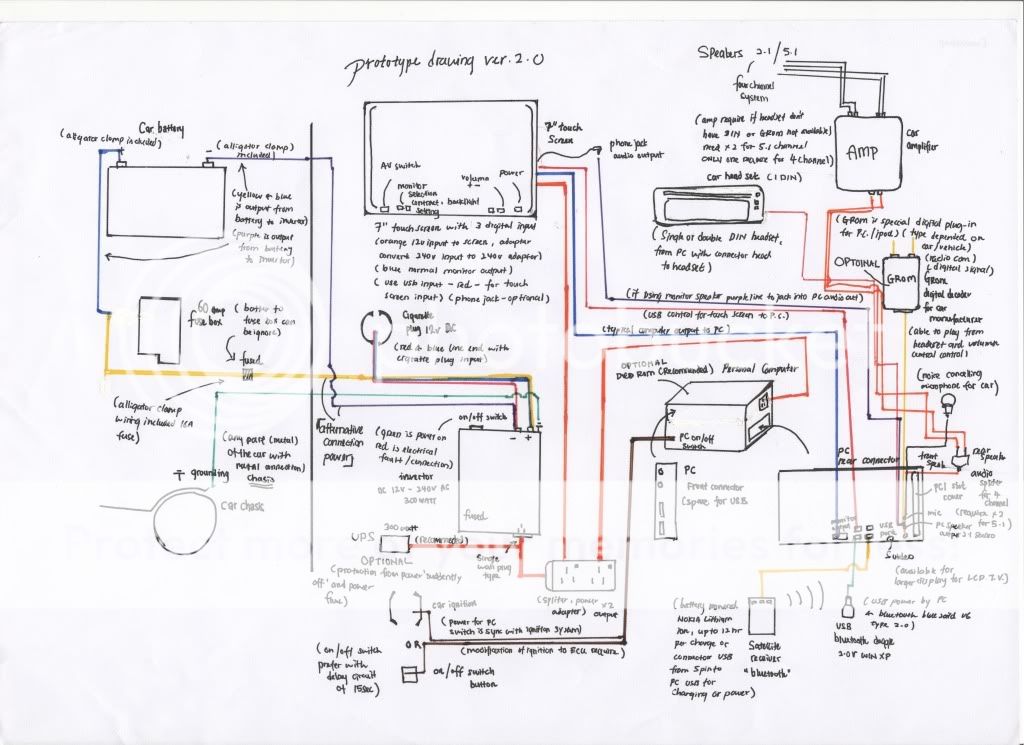 Prototype drawing ver. 2.0
Speakers 2.1/5.1
four channel
system
Car battery
(alligator clamp included)
(alligator clamp)
included
(yellow & blue
is output from
battery to inverter)
(purple is output
from battery
to inverter)
+
-
60 amp
fuse box
(batter to
fuse box can
be ignore)
fused
(alligator clamp
wiring included 16A
fuse)
(any part (metal)
of the car with
metal connection)
chasis
grounding
car chasis
AV switch
monitor
(selection
contrast, backlight)
setting
volume
+ -
power
7" touch
screen
phone jack
audio output
7" touchscreen with 3 digital input
(orange 12v input to screen, adapter
converts 240V input to 240V adaptor)
(blue normal monitor output)
(use usb input - red - for touch
screen input) (phone jack - optional)
Cigarette
plug 12v D.C
(red & blue line end with
cigratte plug input)
[alternative
connection
power]
on/off switch
- +
(green is power on
red is electrical
fault/connection)
invertor
DC 12V - 240V AC
300 WATT
fused
300 watt
UPS
(recommended)
OPTIONAL
(protection from power suddenly
off and power
fluc)
single
wall plug
type
(spliter, power x2
adapter) output
car ignition
(power for PC
switch is sync with ignition system)
OR
(modification of ignition to ECU require)
(on/off switch
prefer with
delay circuit
of 15sec)
on/off switch
button
(amp require if headset don't
have DIN or GROM not available)
need x2 for 5.1 channel
ONLY one require for 4 channel)
AMP
car
amplifier
car head set (1 DIN)
(Single or double DIN headset,
from PC with connector head
to headset)
(GROM is special digital plug-in
for PC./ipod) (type depended on
car/vehicle)
(radio com)
(digital signal)
OPTIONAL
GROM
Grom
digital decoder
for car
manufacturer
(able to play from
headset and volume
control control)
(if using monitor speaker purple line to jack into PC audio out)
(USB control for touch screen to P.C.)
(typical computer output to PC)
OPTIONAL
DVD Rom (Recommended)
Personal Computer
PC on/off
switch
PC
Front connector
(spare for USB
(noise cancelling
microphone for car)
PC
rear connector
front
speak
rear
speak
audio
spider
for 4
channel
PCI slot
cover
mic (require x2
PC speaker for 5.1)
output 2.1 stereo
monitor
output
USB
port
S.video
(available for
larger display for LCD T.V.)
(battery powered
NOKIA Lithium
Ion, up to 12hr
per charge or
connector USB
from 5pin to
PC usb for
charging or power)
Satellite
receiver
"bluetooth"
USB
bluetooth dongle
2.0V WIN XP
(USB power by PC
& bluetooth
type 2.0)